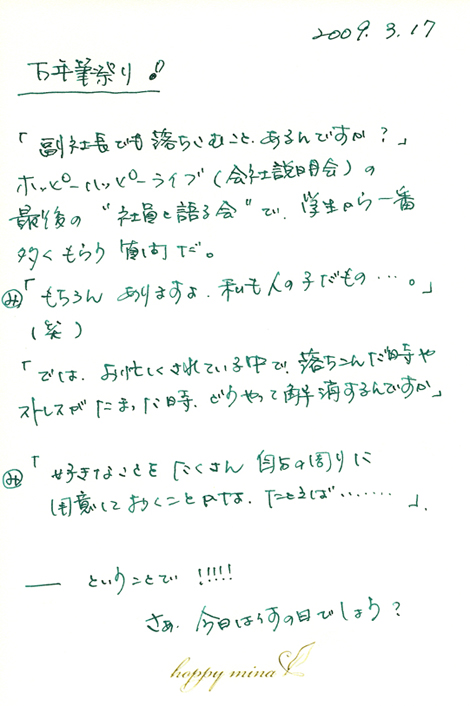 2009. 3. 17
万年筆祭り!
「副社長でも落ちこむこと、あるんですか?」
ホッピーハッピーライブ(会社説明会)の
最後の"社員と語る会"で、学生から一番
多くもらう質問だ。
み「もちろん ありますよ、私も人の子だもの…。」
(笑)
「では、お忙しくされている中で、落ちこんだ時や
ストレスがたまった時、どうやって解消するんですか」
み「好きなことを たくさん 自分の周りに
用意しておくことかな、たとえば……」.
― ということで !!!!!
さぁ、今日は何の日でしょう?
happy mina